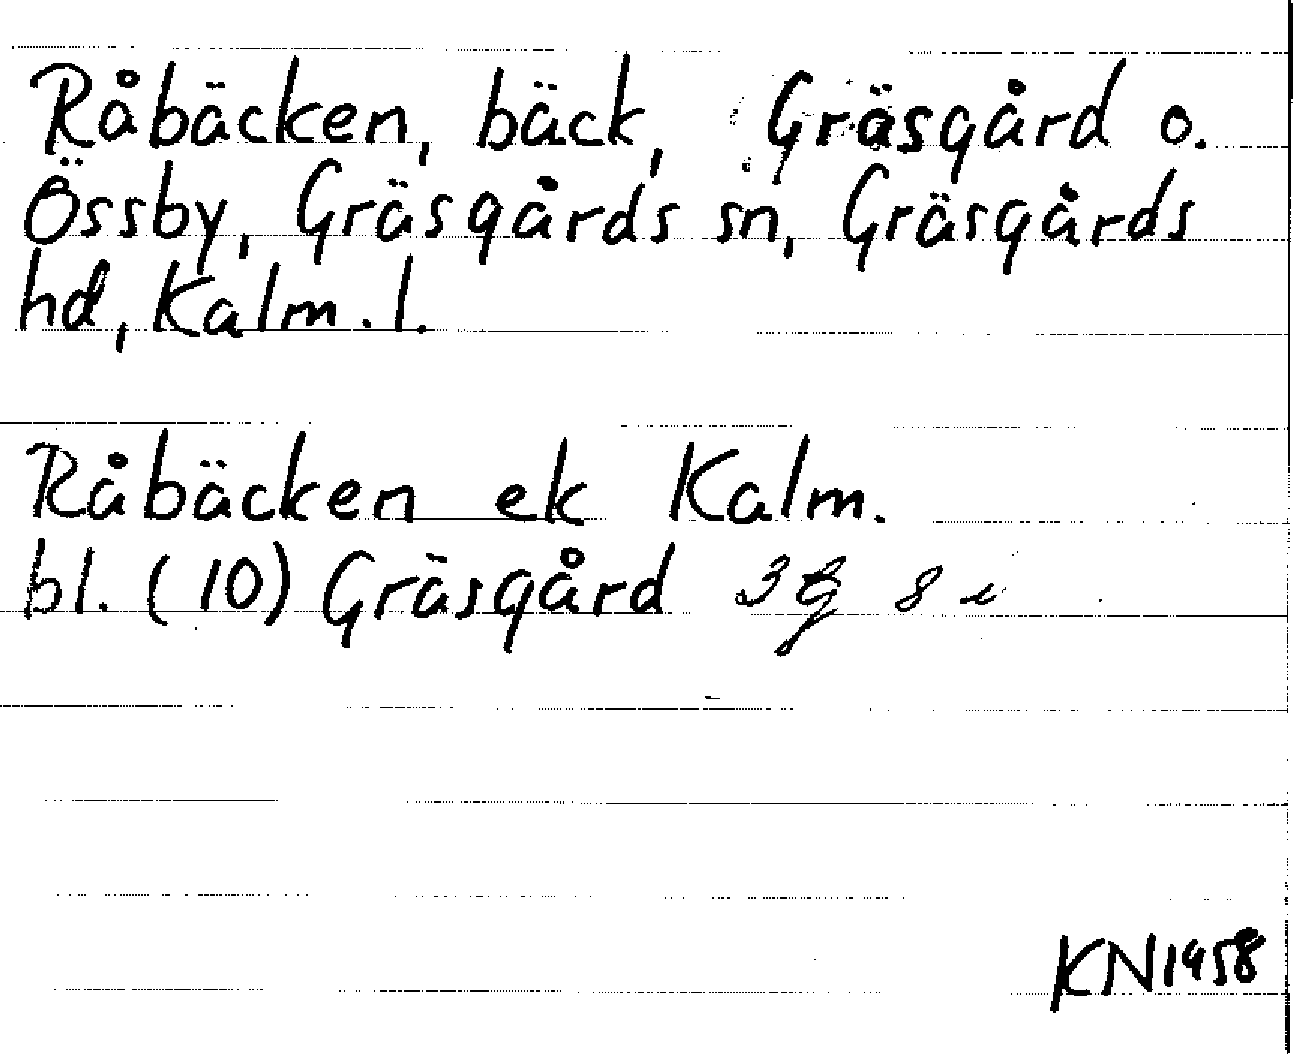 Råbäcken, bäck, Gräsgård o.
Össby, Gräsgårds sn, Gräsgårds
hd, Kalm. l.
Råbäcken ek Kalm.
bl. (10) Gräsgård 3 g 8 i
KN1958